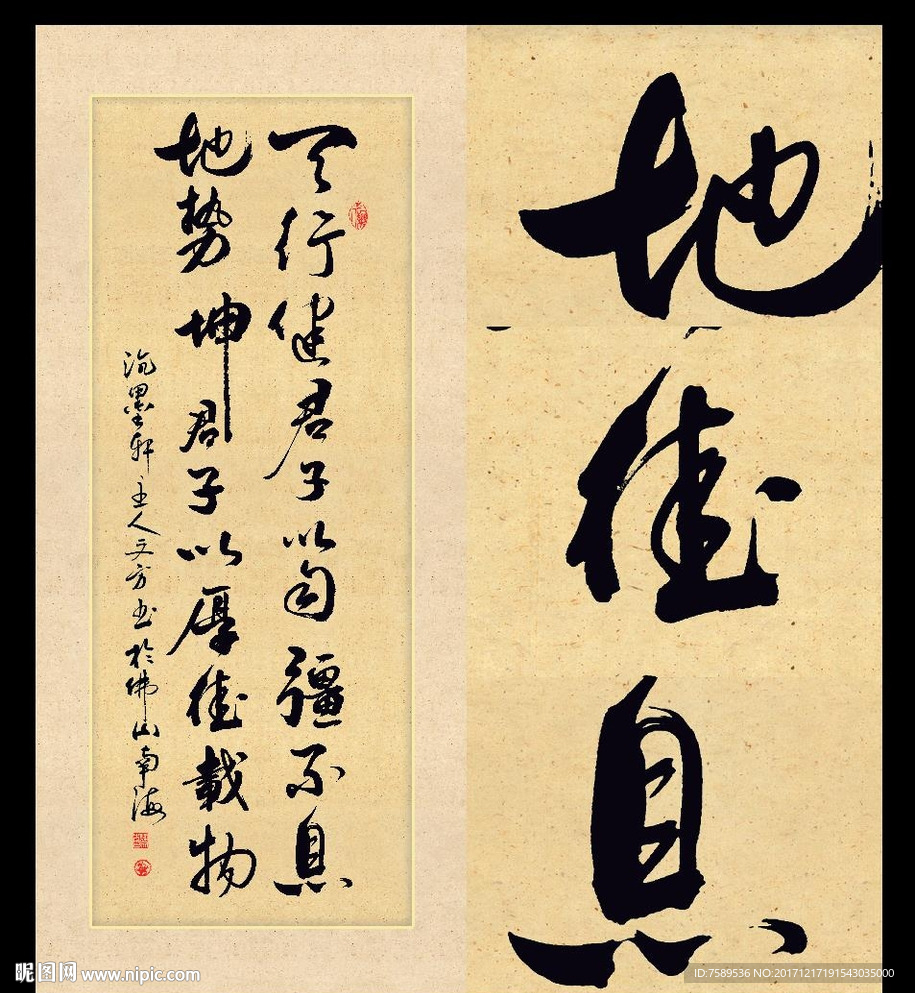 天行健君子以自彊不息
地势坤君子以厚德載物
沉墨轩主人文方书於佛山南海
地
德
息
昵图网 www.nipic.com
ID:7589536 NO:20171217191543035000